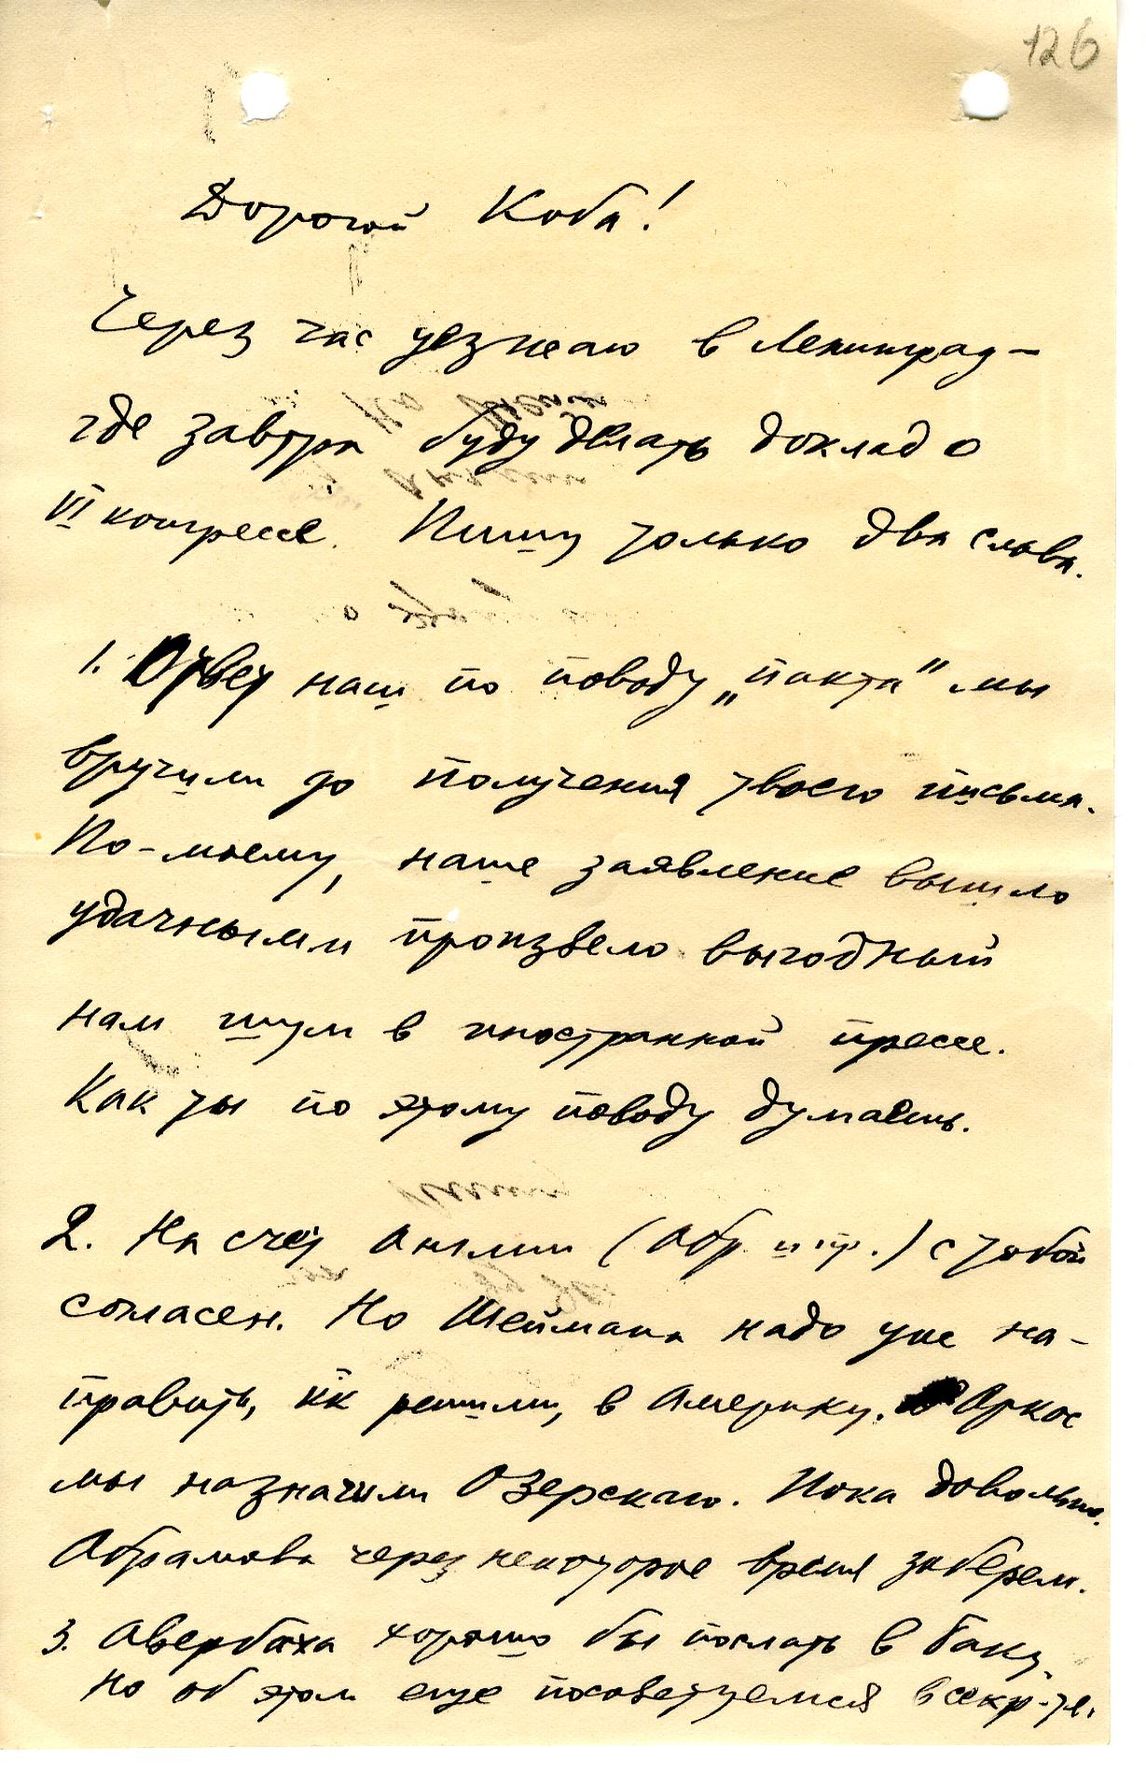 126
Дорогой Коба!
Через час уезжаю в Ленинград –
где завтра буду делать доклад о
VI конгрессе. Пишу только два слова.
1. Ответ наш по поводу „пакта" мы
вручили до получения твоего письма.
По-моему, наше заявление вышло
удачным и произвело выгодный
нам шум в иностранной прессе.
Как ты по этому поводу думаешь.
2. На счет Англии (Абр. и пр.) с тобой
согласен. Но Шеймана надо уже на-
править, как решили, в Америку. Аркос
мы назначили Озерского. Пока довольно.
Абрамова через некоторое время заберем.
3. Авербаха хорошо бы послать в Баку.
Но об этом еще посоветуемся в секр-те.